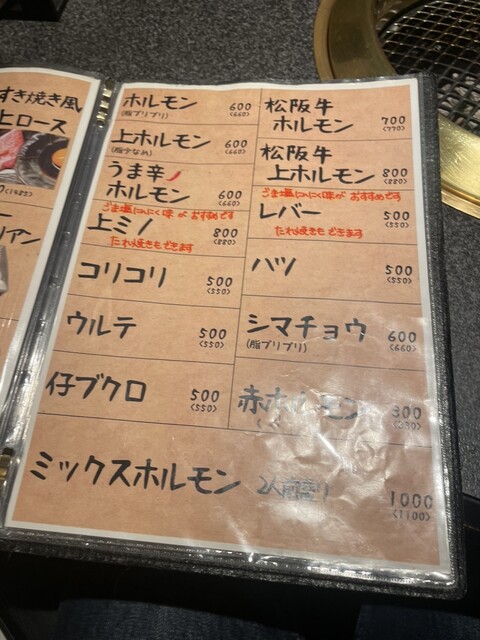 すき焼き風
上ロース
ホルモン
(脂プリプリ)
600
<660>
上ホルモン
(脂少なめ)
600
<660>
うま辛
ホルモン
600
<660>
ごま塩にんにく味がおすすめです
上ミノ
800
<880>
たれ焼きもできます
コリコリ
500
<550>
ウルテ
500
<550>
仔ブクロ
500
<550>
松阪牛
ホルモン
700
<770>
松阪牛
上ホルモン
800
<880>
ごま塩にんにく味がおすすめです
レバー
500
<550>
たれ焼きもできます
ハツ
500
<550>
シマチョウ
(脂プリプリ)
600
<660>
赤ホルモン
300
<330>
ミックスホルモン
1000
<1100>